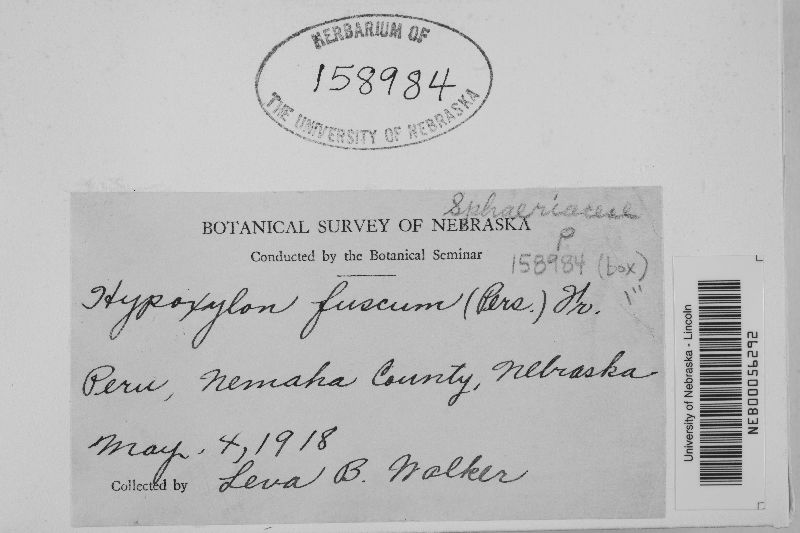 HERBARIUM OF
158984
THE UNIVERSITY OF NEBRASKA
Sphaeriaceae
BOTANICAL SURVEY OF NEBRASKA
P
Conducted by the Botanical Seminar
158984 (box)
1"
Hypoxylon fuscum (Pers.) Fr.
Peru, Nemaha County, Nebraska
May. 4, 1918
Collected by Leva B. Walker
University of Nebraska - Lincoln
NEB00056292